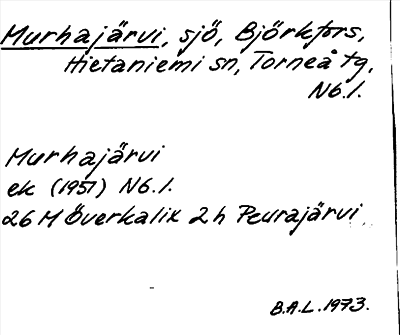 Murhajärvi, sjö, Björkfors,
Hietaniemi sn, Torneå tg,
Nb.l.
Murhajärvi
ek (1951) Nb.l.
26 M Överkalix 2 h Peurajärvi
B.A.L. 1973.